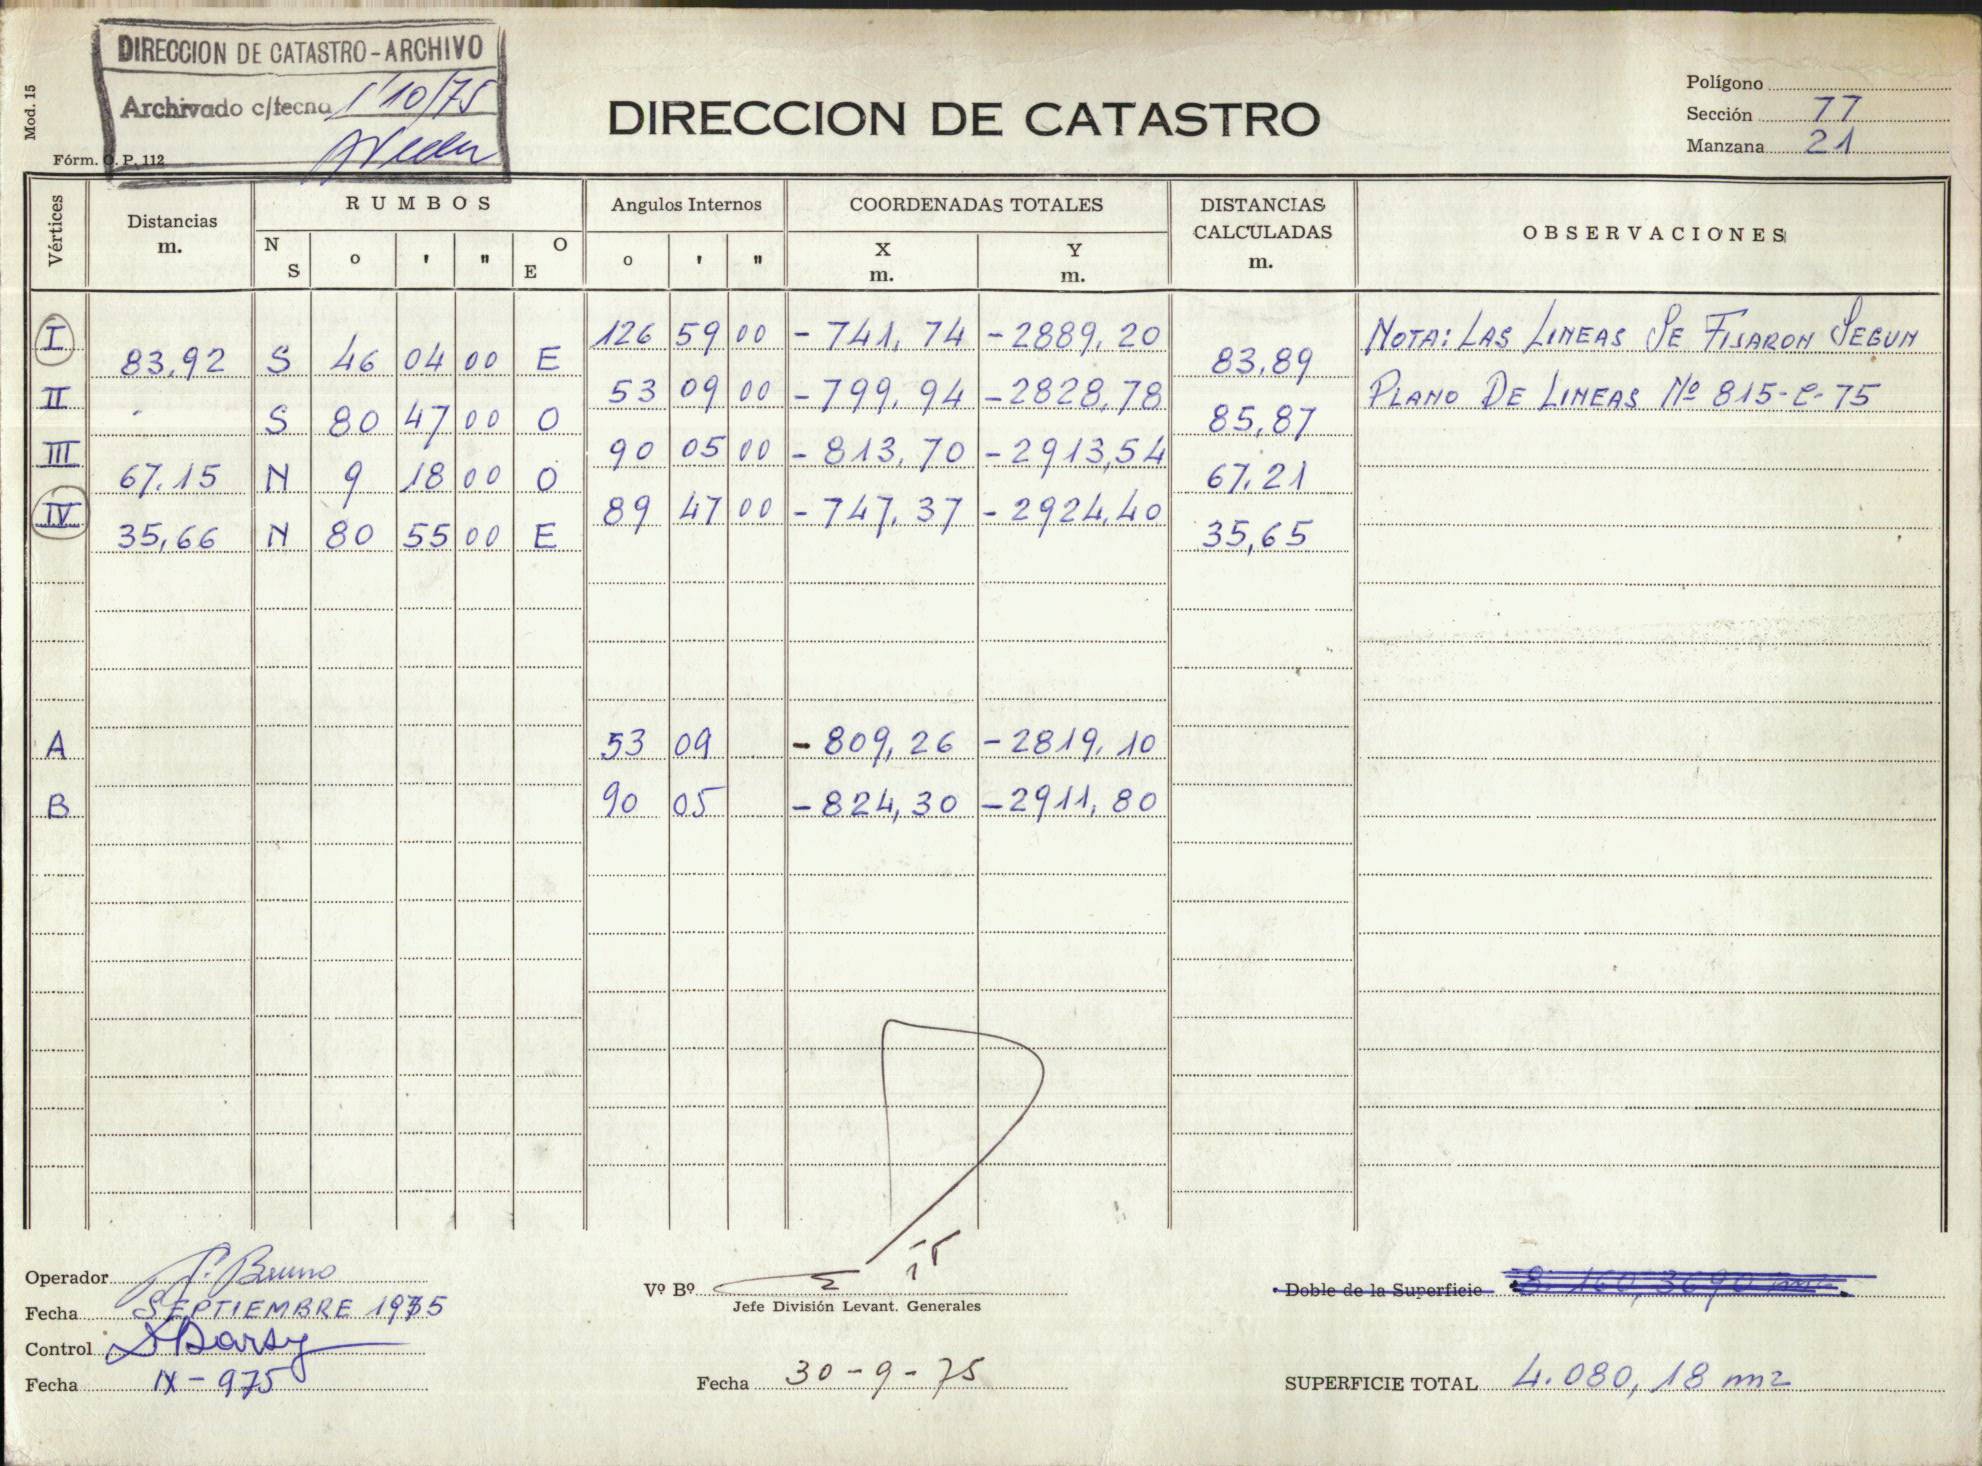 DIRECCION DE CATASTRO-ARCHIVO
Archivado c/fecha 1/10/75
Mod. 15
Fórm. O. P. 112
DIRECCION DE CATASTRO
Polígono
Sección 77
Manzana 21
Vértices Distancias m. RUMBOS Angulos Internos COORDENADAS TOTALES DISTANCIAS CALCULADAS m. OBSERVACIONES
N S o ' " O E o ' " X m. Y m.
I 126 59 00 -741,74 -2889,20 NOTA: LAS LINEAS SE FIJARON SEGUN
83,92 S 46 04 00 E 83,89
II 53 09 00 -799,94 -2828,78 PLANO DE LINEAS Nº 815-C-75
S 80 47 00 O 85,87
III 90 05 00 -813,70 -2913,54
67,15 N 9 18 00 O 67,21
IV 89 47 00 -747,37 -2924,40
35,66 N 80 55 00 E 35,65
A 53 09 -809,26 -2819,10
B 90 05 -824,30 -2911,80
Operador J. Bruno
Fecha SEPTIEMBRE 1975
Control
Fecha IX-975
Vº Bº
Jefe División Levant. Generales
Fecha 30-9-75
Doble de la Superficie 8.160,3690 m2
SUPERFICIE TOTAL 4.080,18 m2